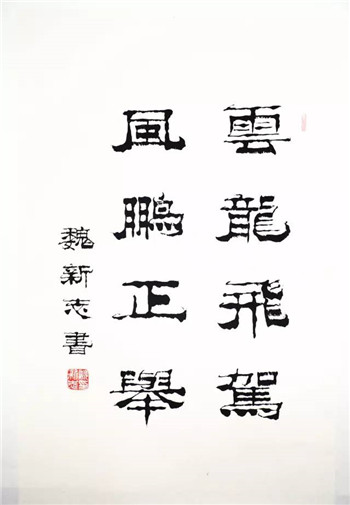 雲龍飛駕
風鵬正舉
魏新志書